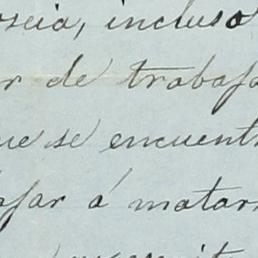 oseia, incluso
r de trabaja
ue se encuent
jar á matar